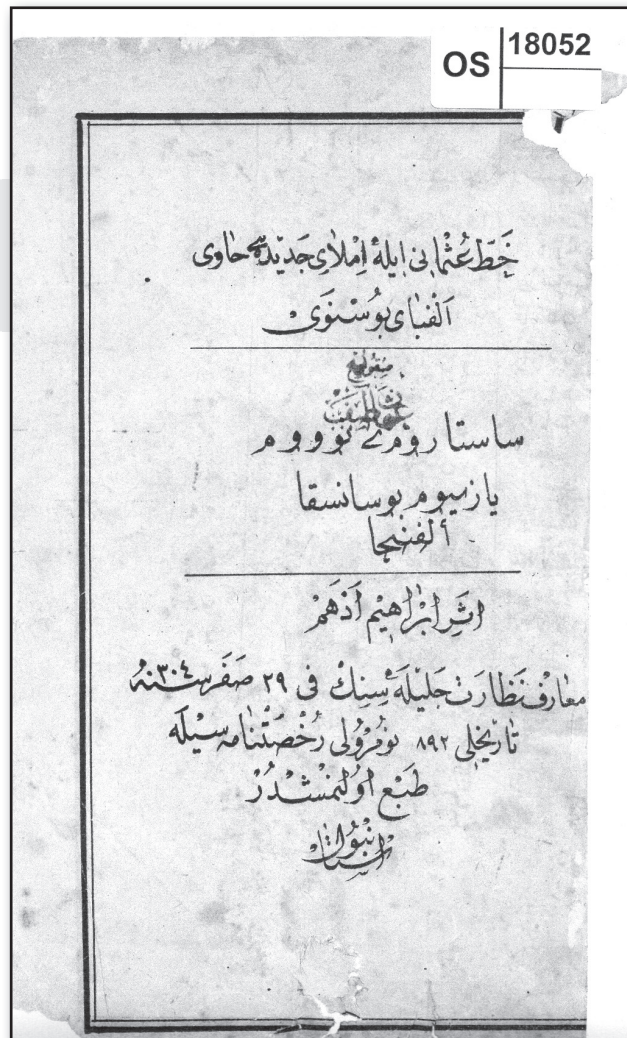 OS 18052
خَطِّ عُثْمَانِی اِیلَهٔ اِمْلَایِ جَدِیدَهیِ حَاوِی
اَلِفْبَای بُوسْنَوِیْ
ساستا رۉمۉ نۉووم
یازیيوم بوسانسقا
ألفنیجا
اَثَرِ اِبْرَاهِیمْ اَدْهَمْ
مَعَارِفْ نَظَارَتِ جَلِیلَهٔ سِنِكْ فِی ٢٩ صَفَرْ سَنَه ٣٠٤
تَارِیخْلِی ٨٩٢ نُومْرُولِی رُخْصَتْنَامَه سِیلَه
طَبْعْ اُولُنْمِشْدُرْ
اِسْتَانْبُولْ